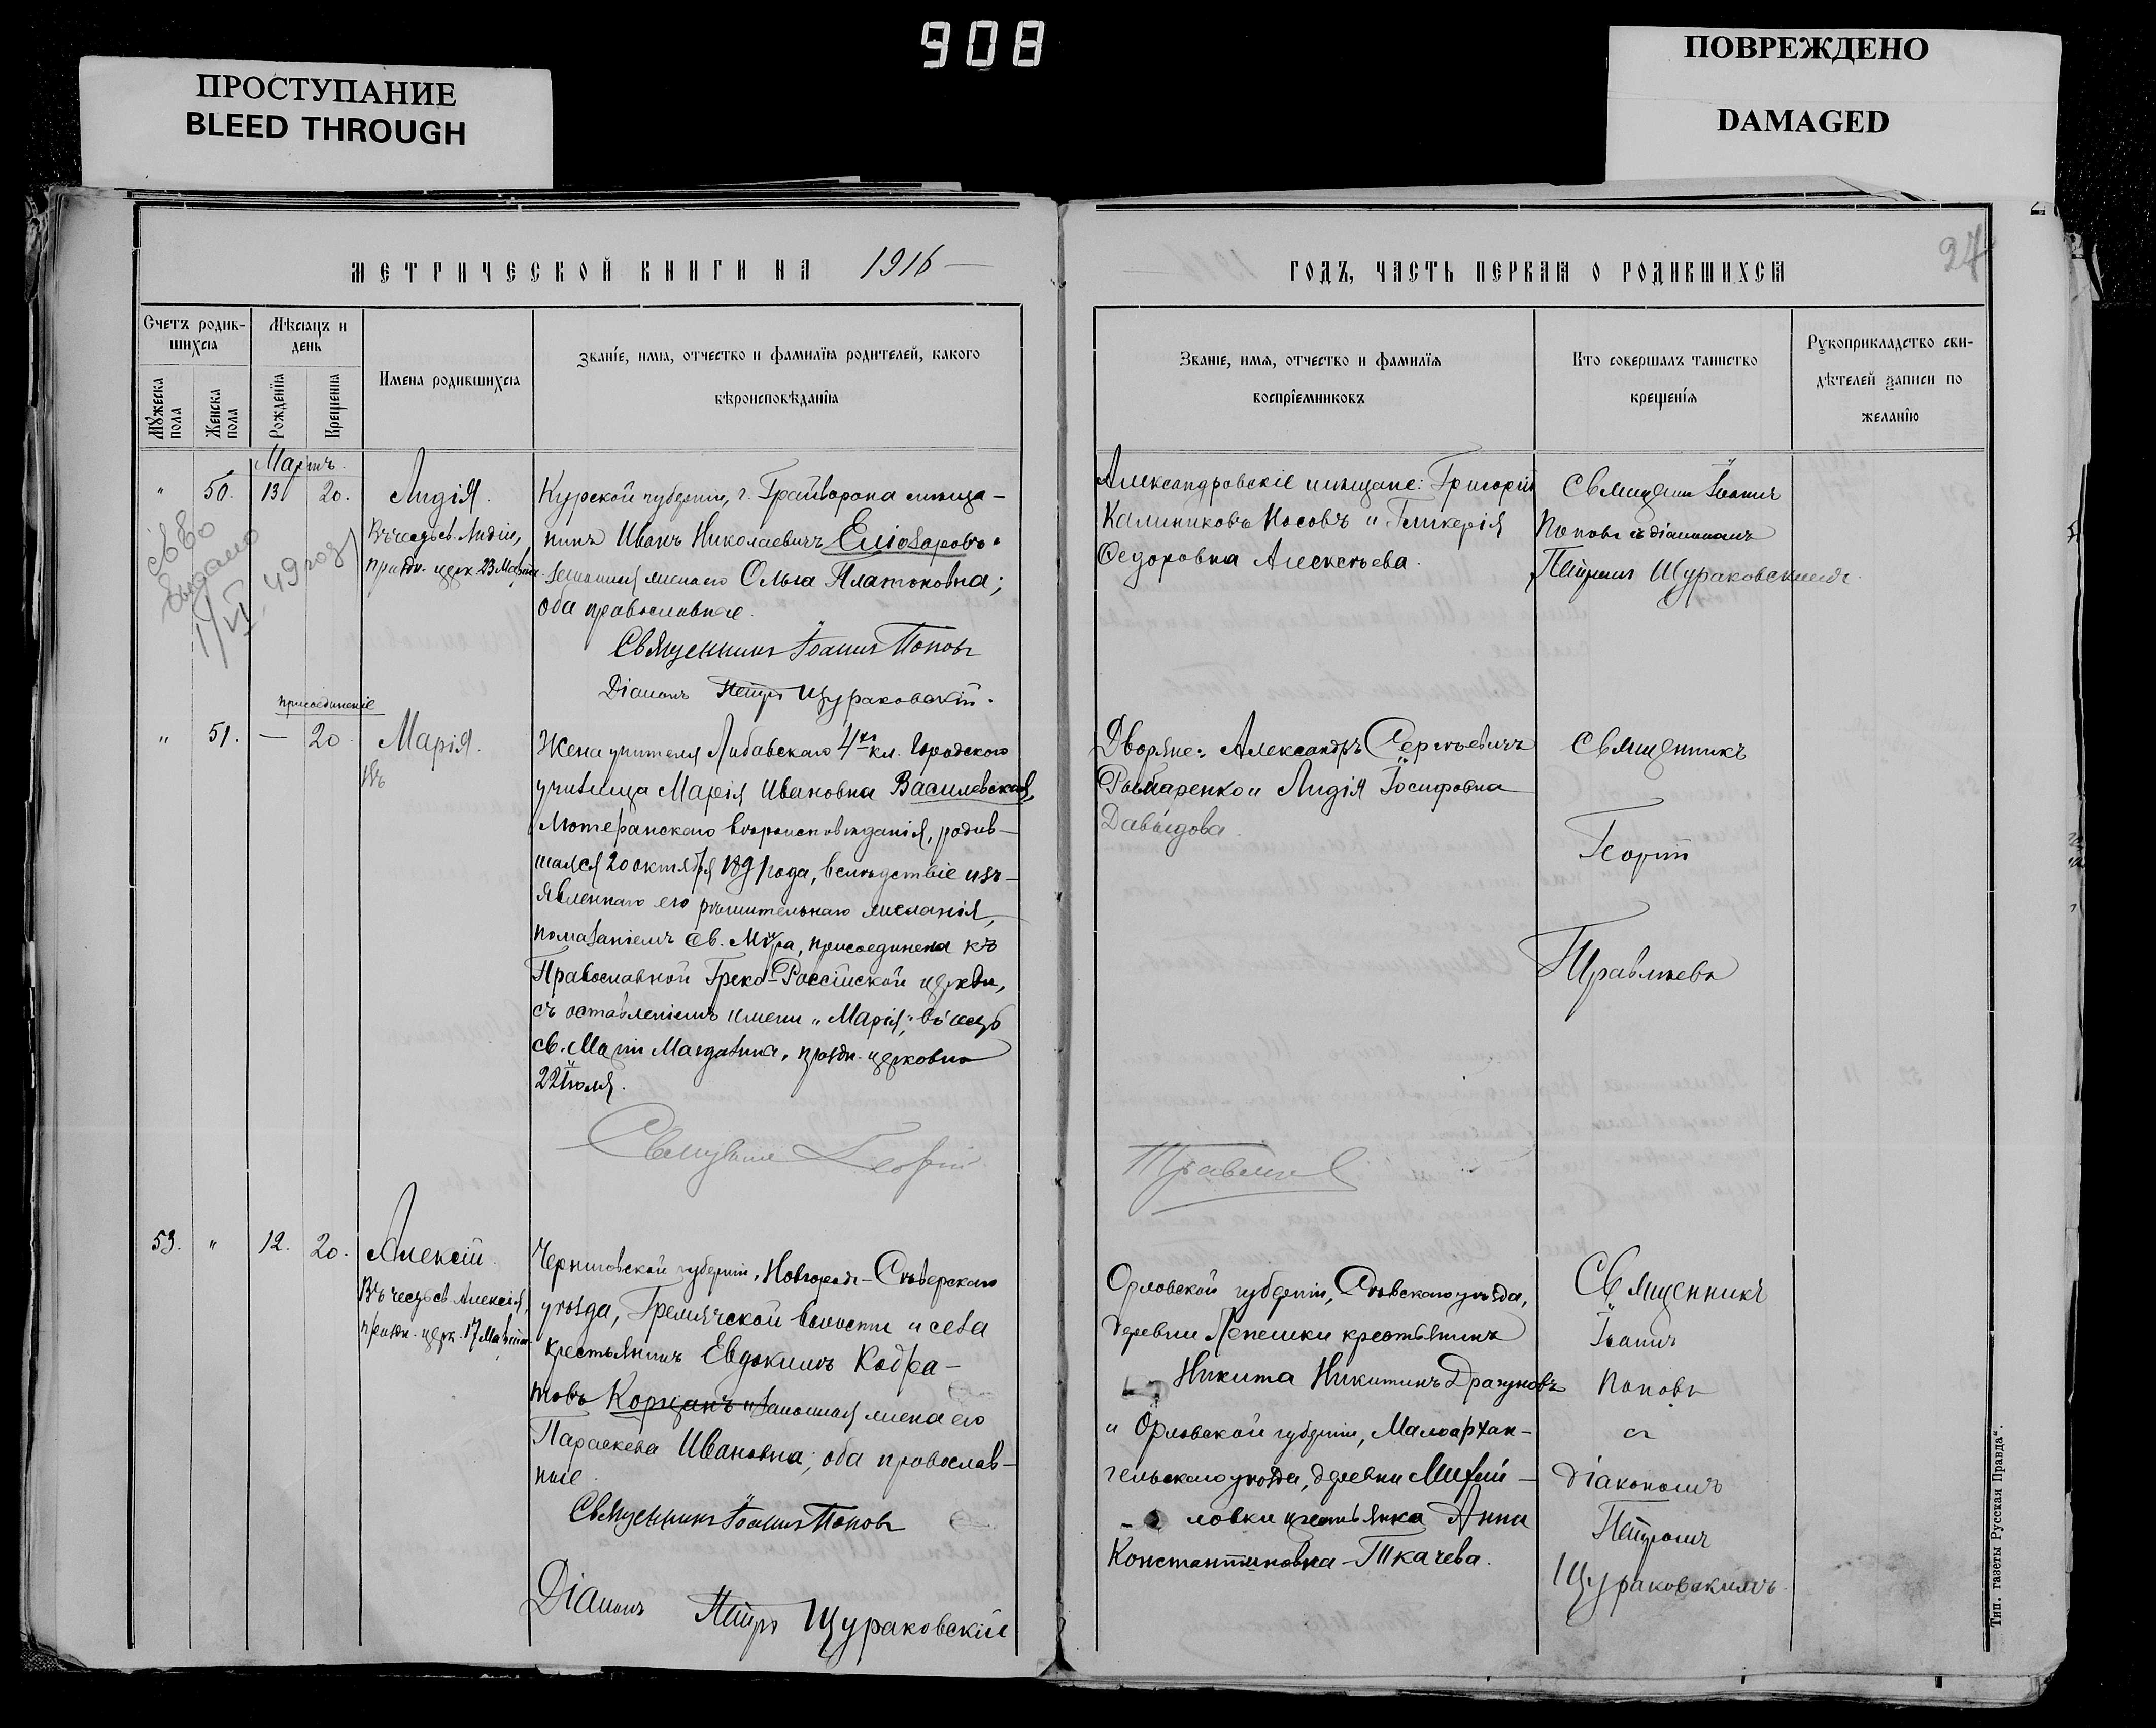 908
ПРОСТУПАНИЕ
BLEED THROUGH
ПОВРЕЖДЕНО
DAMAGED
МЕТРИЧЕСКОЙ КНИГИ НА 1916
Счетъ родив-
шихся
Мѣсяцъ и
день
Имена родившихся
Званіе, имя, отчество и фамилія родителей, какого
вѣроисповѣданія
Мужеска
пола
Женска
пола
Рожденія
Крещенія
Мартъ.
" 50. 13 20.
Лидія.
Въ честь св. Лидіи,
праздн. церк. 23 Марта.
св во
выдано
49 год
Курской губерніи, г. Грайворона мѣща-
нинъ Иванъ Николаевичъ
законная жена его Ольга Платоновна;
оба православные.
Священникъ Іоаннъ Поповъ
Діаконъ Петръ Щураковскій.
присоединеніе
" 51. — 20.
Марія.
Въ
Жена учителя Либавскаго 4хъ кл. Городского
училища Марія Ивановна Василевская,
Лютеранскаго вѣроисповѣданія, родив-
шаяся 20 октября 1891 года, вслѣдствіе изъ-
явленнаго его рѣшительнаго желанія,
помазаніемъ Св. Мѵра, присоединена къ
Православной Греко-Россійской церкви,
съ оставленіемъ имени „Марія", въ честь
св. Маріи Магдалины, праздн. церковью
22 Іюля.
Священникъ Георгій
53. " 12. 20.
Алексій.
Въ честь св Алексія,
праздн. церк. 17 Марта.
Черниговской губерніи, Новгородъ-Сѣверскаго
уѣзда, Гремячской волости и села
крестьянинъ Евдокимъ Кодра-
товъ Корцанъ и законная жена его
Параскева Ивановна; оба православ-
ные.
Священникъ Іоаннъ Поповъ
Діаконъ Петръ Щураковскій
ГОДЪ, ЧАСТЬ ПЕРВАЯ О РОДИВШИХСЯ
24
Званіе, имя, отчество и фамилія
воспріемниковъ
Кто совершалъ таинство
крещенія
Рукоприкладство сви-
дѣтелей записи по
желанію
Александровскіе мѣщане: Григорій
Калиниковъ Носовъ и Гликерія
Ѳедоровна Алексѣева.
Священникъ Іоаннъ
Поповъ съ діакономъ
Петромъ Щураковскимъ.
Дворяне: Александръ Сергѣевичъ
и Лидія Іосифовна
Давыдова.
Священникъ
Георгій
Травлневъ
Орловской губерніи, Сѣвскаго уѣзда,
деревни Лепешки крестьянинъ
Никита Никитинъ Драгуновъ
и Орловской губерніи, Малоархан-
гельскаго уѣзда, деревни Михай-
ловки крестьянка Анна
Константиновна Ткачева.
Священникъ
Іоаннъ
Поповъ
съ
діакономъ
Петромъ
Щураковскимъ.
Тип. газеты „Русская Правда".